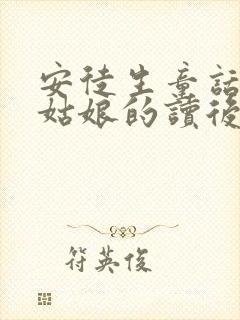 安徒生童話
姑娘的讀後
符英俊